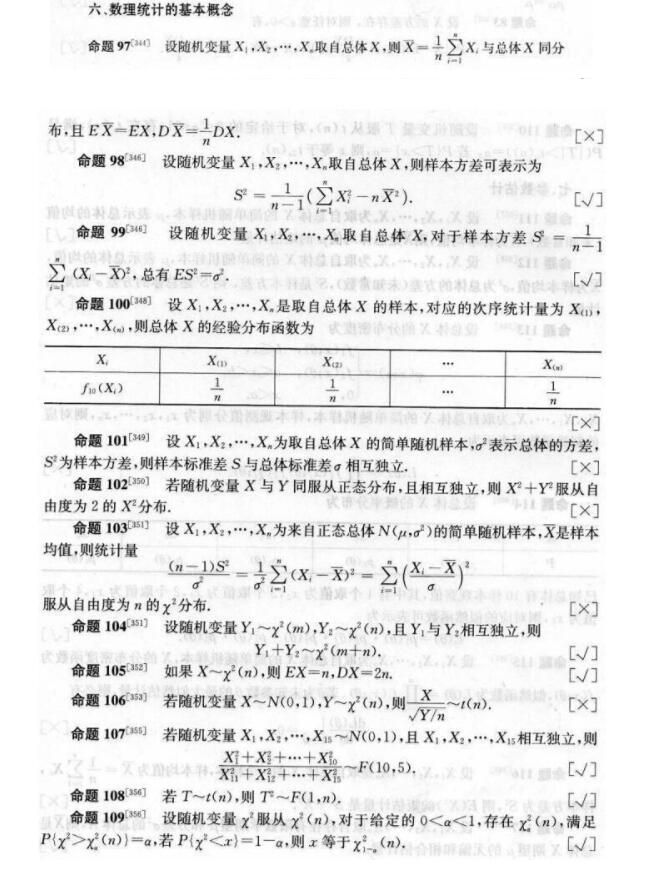 六、数理统计的基本概念
命题 97[344] 设随机变量 X₁,X₂,…,Xₙ取自总体 X,则 X̄=1/n ∑ᵢ₌₁ⁿ Xᵢ 与总体 X 同分
布,且 EX̄=EX,DX̄=1/n DX. [×]
命题 98[346] 设随机变量 X₁,X₂,…,Xₙ取自总体 X,则样本方差可表示为
S²=1/(n−1) (∑ᵢ₌₁ⁿ Xᵢ²−nX̄²). [√]
命题 99[346] 设随机变量 X₁,X₂,…,Xₙ取自总体 X,对于样本方差 S²=1/(n−1)
∑ᵢ₌₁ⁿ (Xᵢ−X̄)²,总有 ES²=σ². [√]
命题 100[348] 设 X₁,X₂,…,Xₙ是取自总体 X 的样本,对应的次序统计量为 X₍₁₎,
X₍₂₎,…,X₍ₙ₎,则总体 X 的经验分布函数为
Xᵢ X₍₁₎ X₍₂₎ … X₍ₙ₎
f₁₀(Xᵢ) 1/n 1/n … 1/n
[×]
命题 101[349] 设 X₁,X₂,…,Xₙ为取自总体 X 的简单随机样本,σ²表示总体的方差,
S²为样本方差,则样本标准差 S 与总体标准差 σ 相互独立. [×]
命题 102[350] 若随机变量 X 与 Y 同服从正态分布,且相互独立,则 X²+Y²服从自
由度为 2 的 X²分布. [×]
命题 103[351] 设 X₁,X₂,…,Xₙ为来自正态总体 N(μ,σ²)的简单随机样本,X̄是样本
均值,则统计量
(n−1)S²/σ²=1/σ² ∑ᵢ₌₁ⁿ (Xᵢ−X̄)²=∑ᵢ₌₁ⁿ ((Xᵢ−X̄)/σ)²
服从自由度为 n 的 χ²分布. [×]
命题 104[351] 设随机变量 Y₁~χ²(m),Y₂~χ²(n),且 Y₁与 Y₂相互独立,则
Y₁+Y₂~χ²(m+n). [√]
命题 105[352] 如果 X~χ²(n),则 EX=n,DX=2n. [√]
命题 106[353] 若随机变量 X~N(0,1),Y~χ²(n),则 X/√(Y/n) ~t(n). [×]
命题 107[355] 若随机变量 X₁,X₂,…,X₁₅~N(0,1),且 X₁,X₂,…,X₁₅相互独立,则
(X₁²+X₂²+…+X₁₀²)/(X₁₁²+X₁₂²+…+X₁₅²) ~F(10,5). [√]
命题 108[356] 若 T~t(n),则 T²~F(1,n). [√]
命题 109[356] 设随机变量 χ²服从 χ²(n),对于给定的 0<α<1,存在 χ²_α(n),满足
P{χ²>χ²_α(n)}=α,若 P{χ²<x}=1−α,则 x 等于 χ²₁₋α(n). [√]